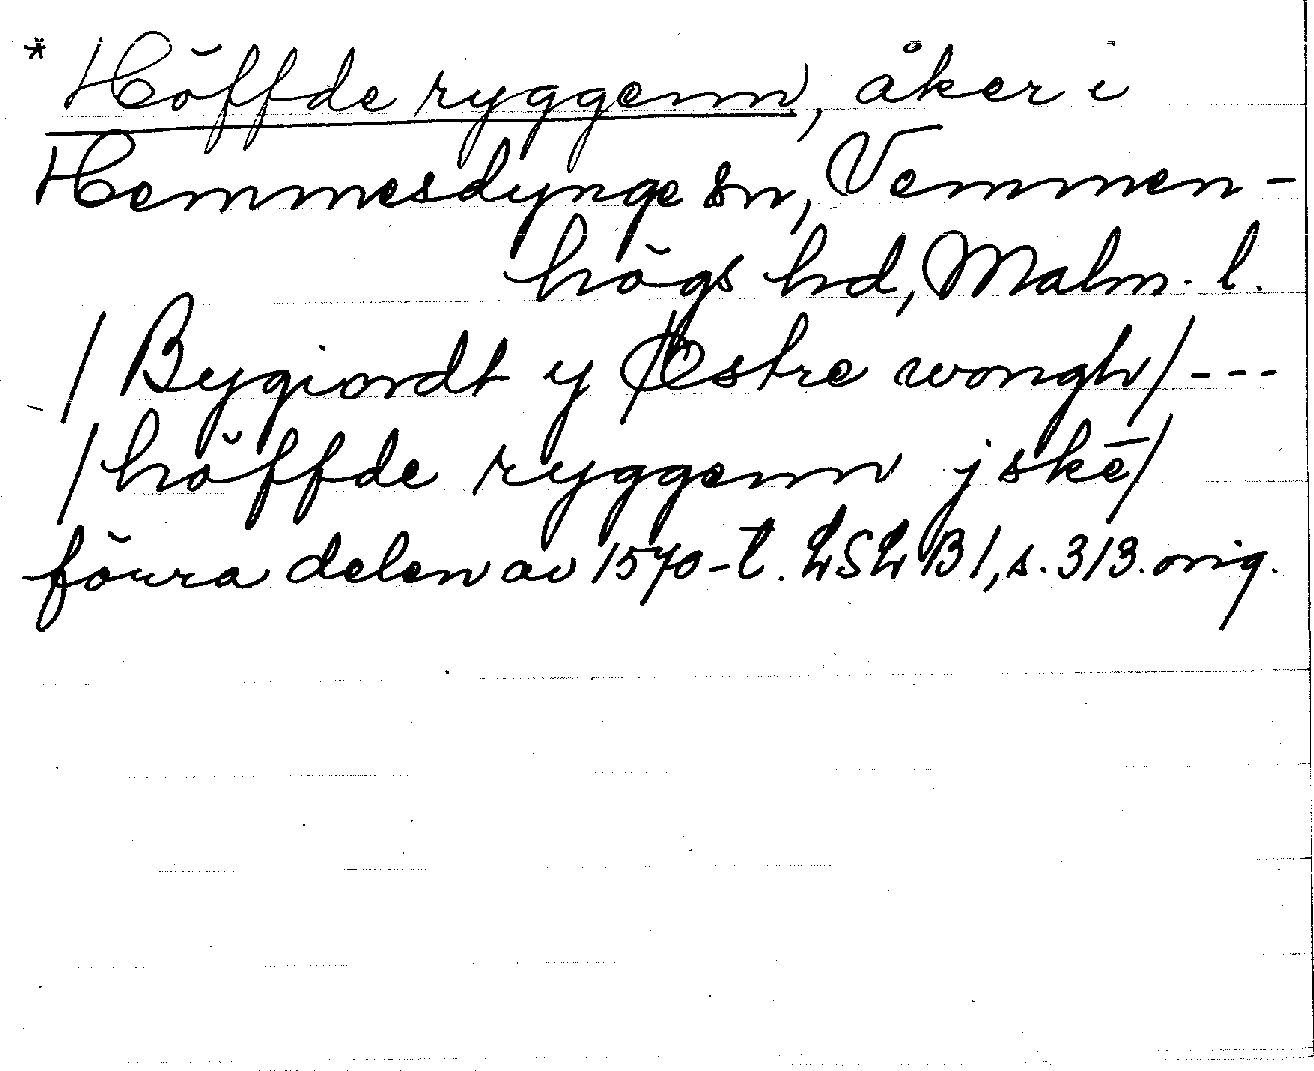 * Höffde ryggenn, åker i
Hemmesdynge sn, Vemmen-
högs hd, Malm. l.
/ Bygiordt y Østre wongh / ---
/ höffde ryggenn j skē /
förra delen av 1570-t. LSLB 1, s. 313. orig.